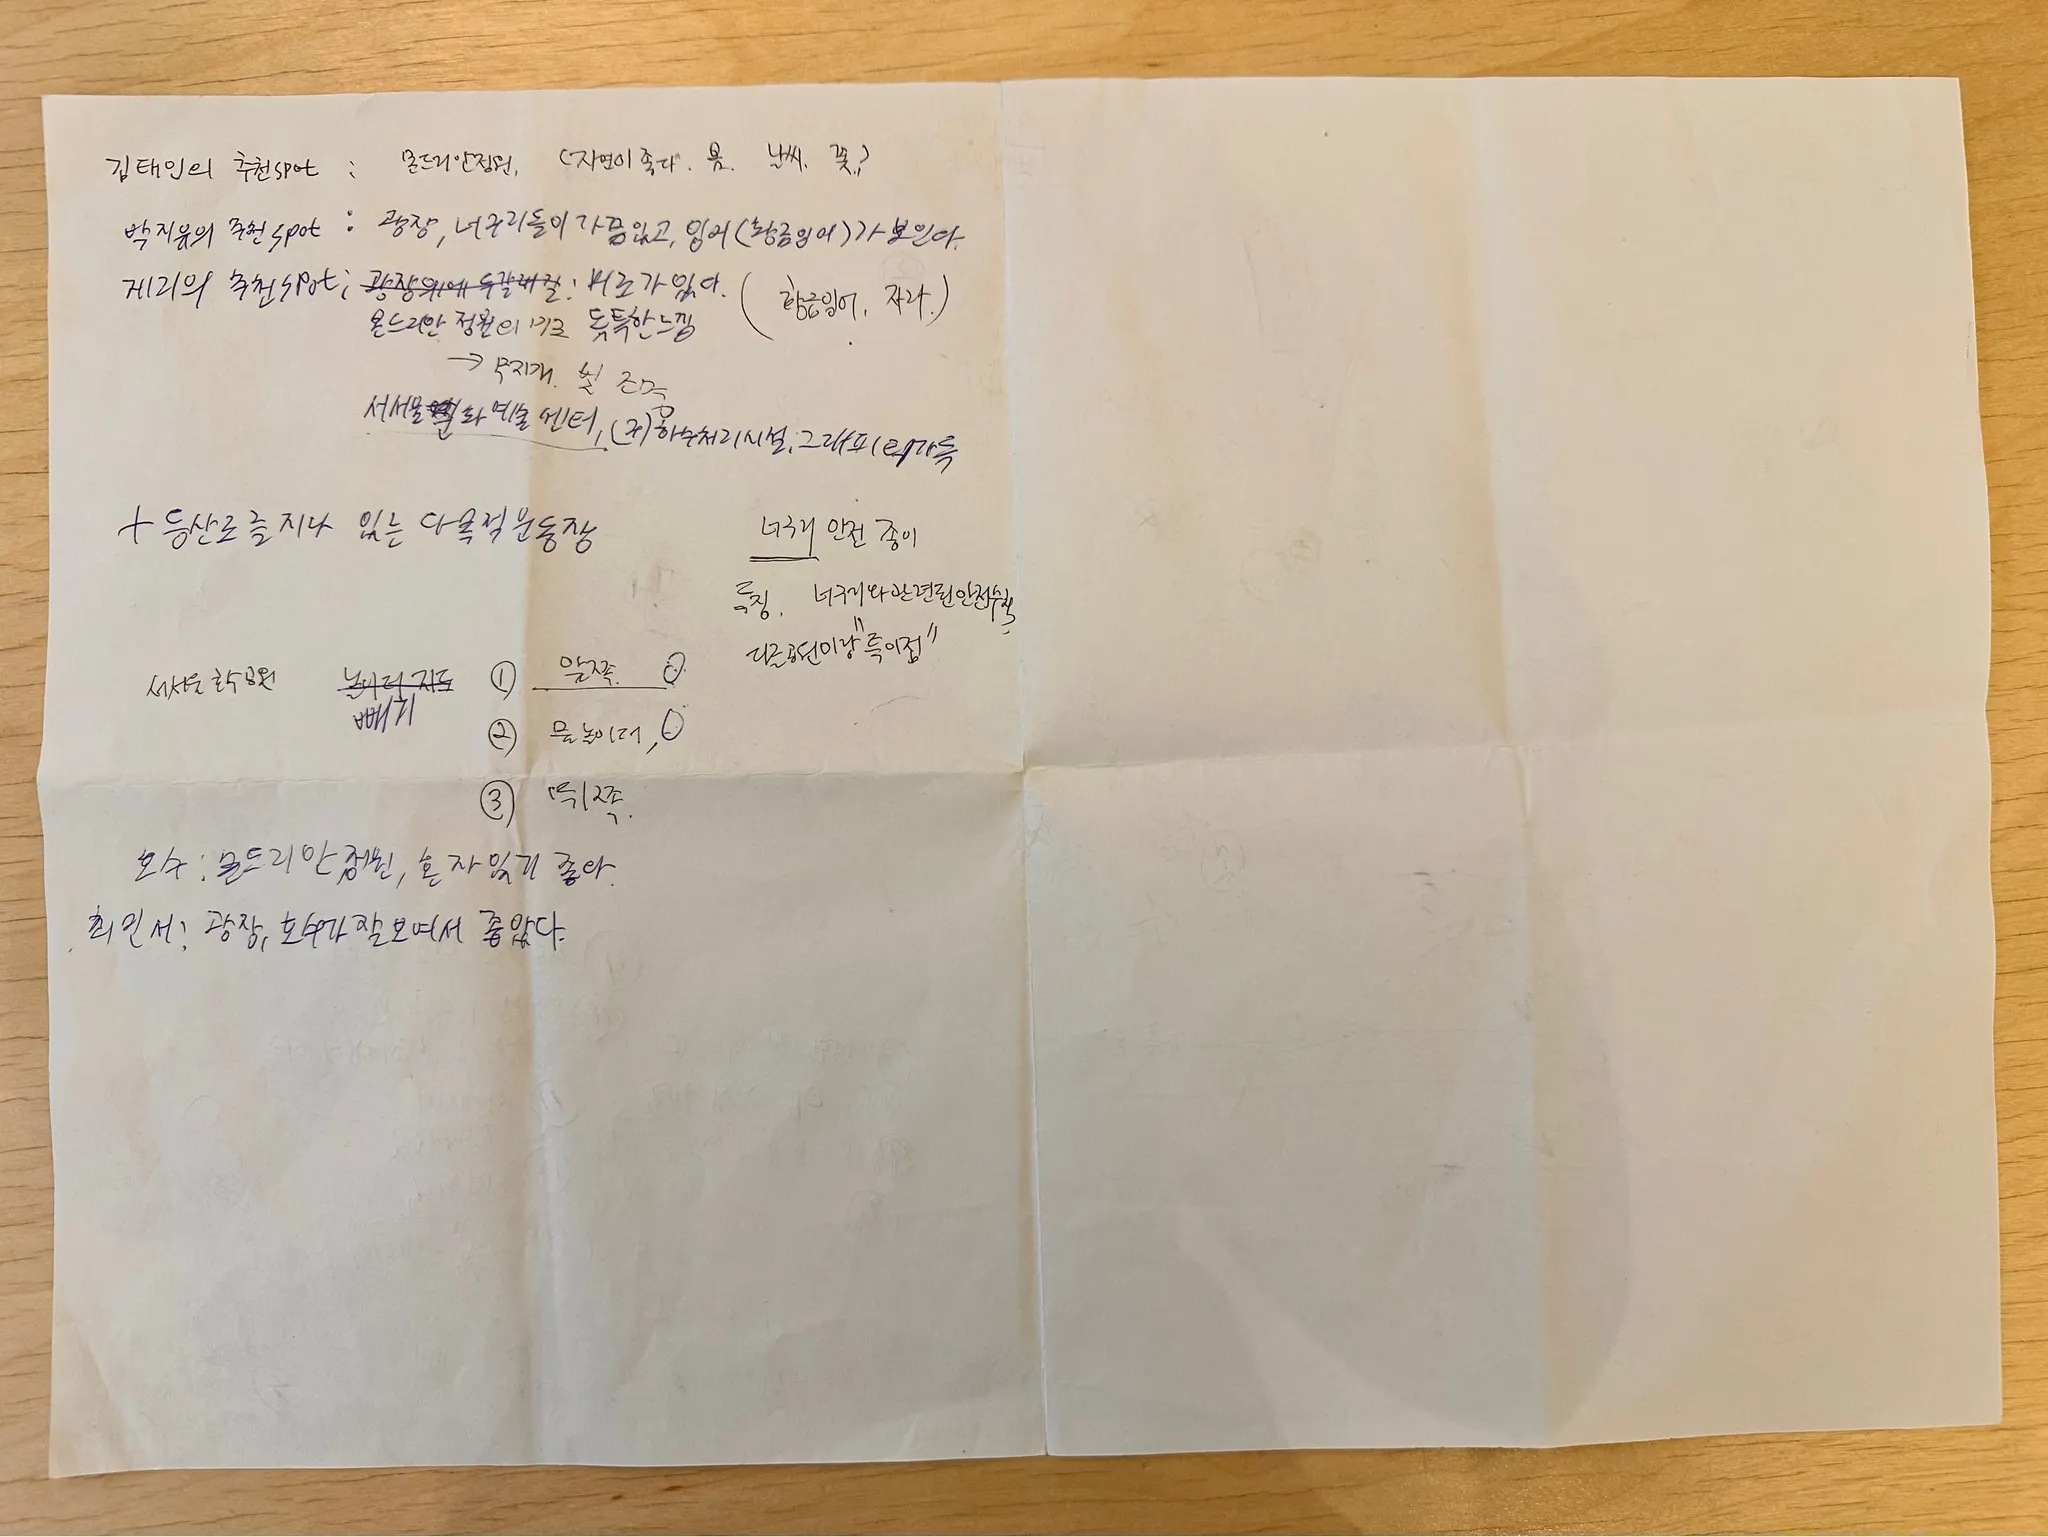 김태인의 추천spot : 몬드리안정원, (자연이 좋다. 봄. 날씨. 꽃,)
박지유의 추천spot : 광장, 너구리들이 가끔있고, 잉어(황금잉어)가 보인다.
제리의 추천spot; 광장위에 두갈래길: 벼르가 있다. (황금잉어, 자라.)
몬드리안 정원의 독특한느낌
→ 무지개. 빛 조명
서서울문화예술센터, (구)하수처리시설, 그래피티가득
+ 등산로를 지나 있는 다목적운동장
너구리 안전 종이
특징. 너구리와관련된안전수칙
다른공원이랑 "특이점"
서서울호수공원 놀이터 지도 ① 앞쪽. 0
빼기
② 물놀이터, 0
③ 뒤쪽.
호수: 몬드리안정원, 혼자있기 좋다.
최인서; 광장, 호수가잘보여서 좋았다.